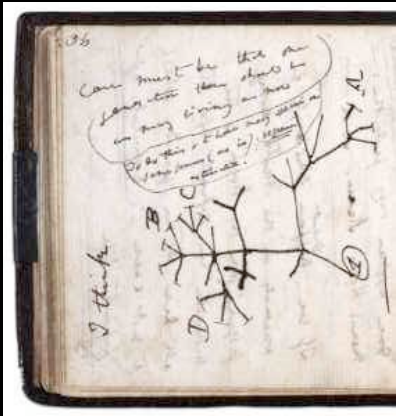 36
I think
Case must be that one
generation then should be
as many living as now
To do this & to have many species in
same genus (as is). requires
extinction.
A
B
C
D
1